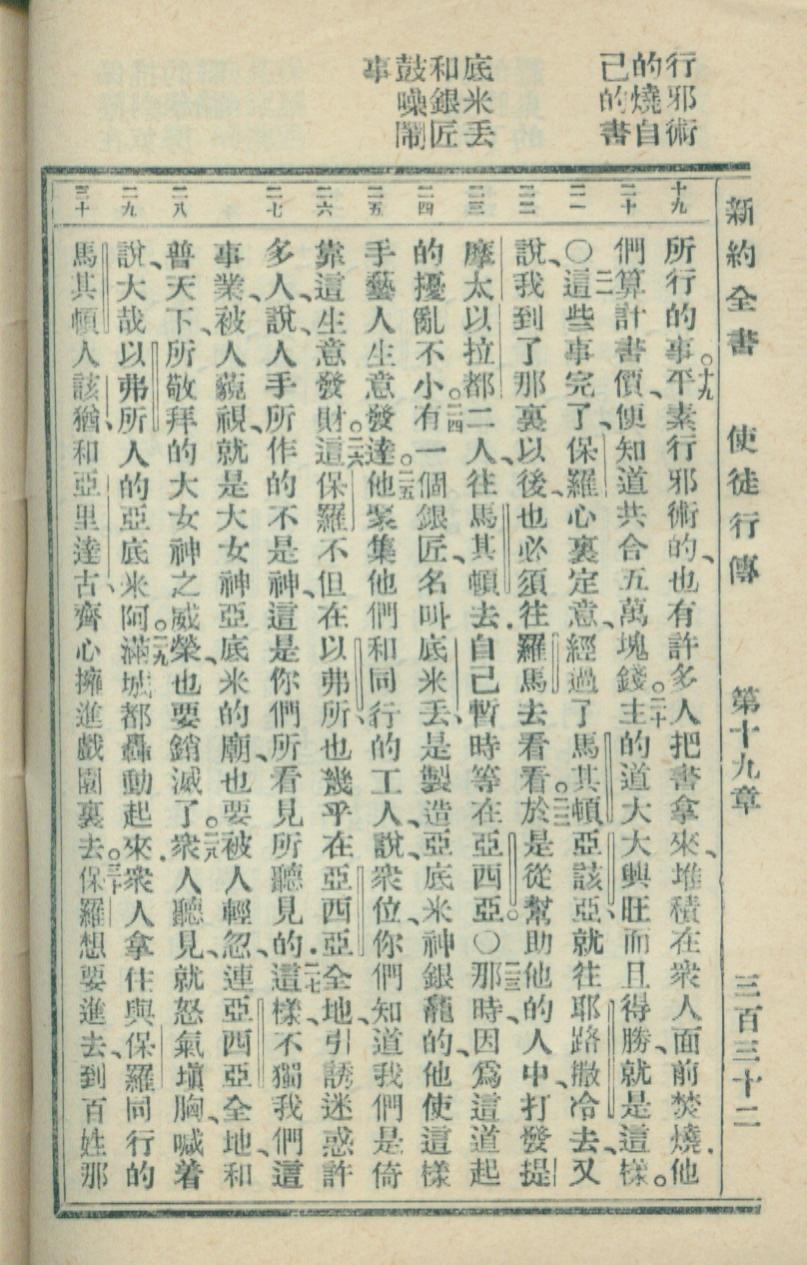 行邪術
的燒自
己的書
底米丟
和銀匠
鼓噪鬧
事
新約全書 使徒行傳 第十九章 三百三十二
十九 二十 二一 二二 二三 二四 二五 二六 二七 二八 二九 三十
所行的事。十九平素行邪術的、也有許多人把書拿來、堆積在衆人面前焚燒.他
們算計書價、便知道共合五萬塊錢。二十主的道大大興旺而且得勝、就是這樣。
〇二一這些事完了、保羅心裏定意、經過了馬其頓、亞該亞、就往耶路撒冷去、又
說、我到了那裏以後、也必須往羅馬去看看。二二於是從幫助他的人中、打發提
摩太以拉都二人、往馬其頓去.自己暫時等在亞西亞。〇二三那時、因爲這道起
的擾亂不小。二四有一個銀匠、名叫底米丟、是製造亞底米神銀龕的、他使這樣
手藝人生意發達。二五他聚集他們和同行的工人、說、衆位、你們知道我們是倚
靠這生意發財。二六這保羅不但在以弗所、也幾乎在亞西亞全地、引誘迷惑許
多人、說、人手所作的不是神、這是你們所看見所聽見的.二七這樣、不獨我們這
事業、被人藐視、就是大女神亞底米的廟、也要被人輕忽、連亞西亞全地、和
普天下、所敬拜的大女神之威榮、也要銷滅了。二八衆人聽見、就怒氣塡胸、喊着
說、大哉以弗所人的亞底米阿。二九滿城都轟動起來.衆人拿住與保羅同行的
馬其頓人該猶、和亞里達古、齊心擁進戲園裏去。三十保羅想要進去、到百姓那